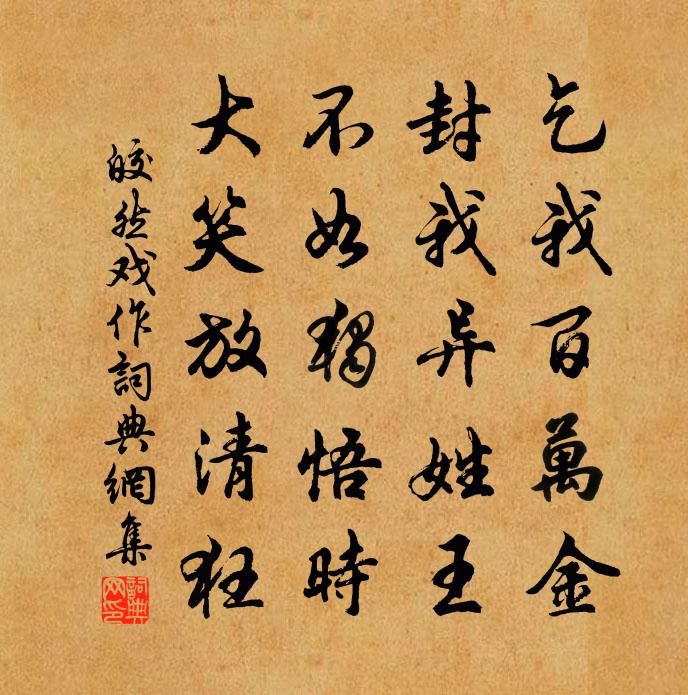 乞我百萬金
封我异姓王
不如獨悟時
大笑放清狂
皎然戏作詞典網集
詞典
网印